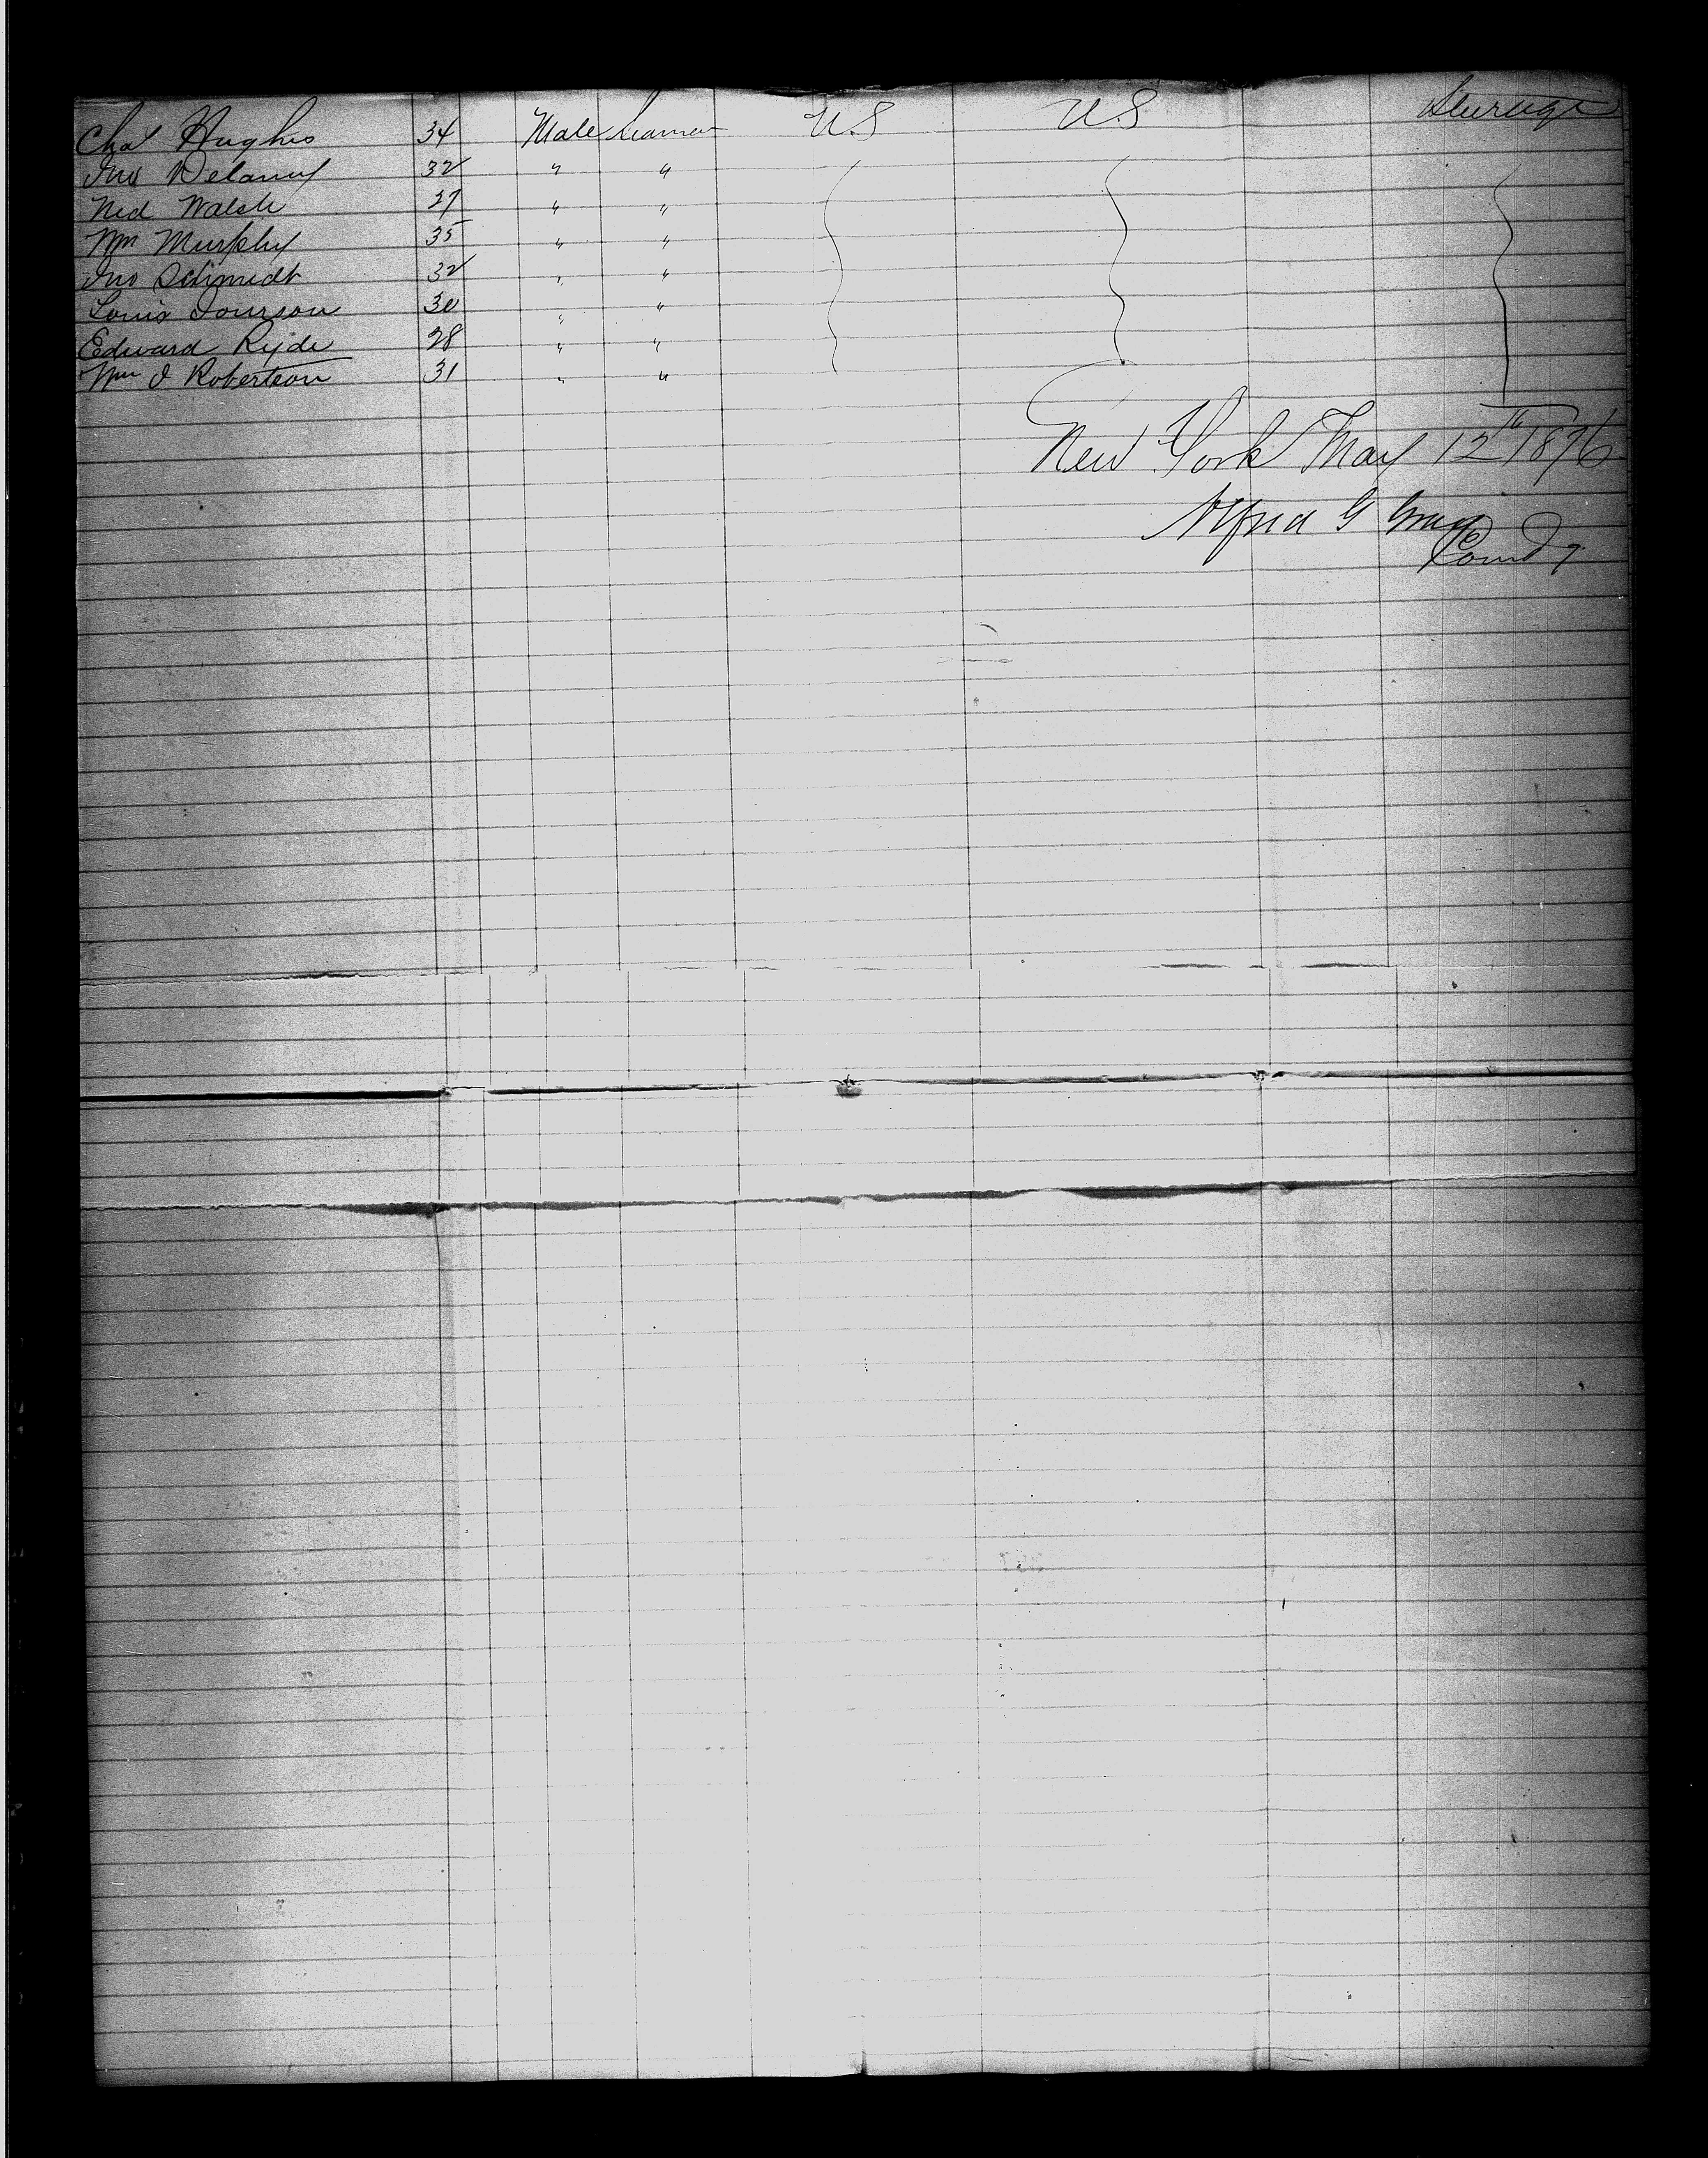 Chas Hughes 34 Male Seaman U.S U.S Steerage
Jno Delany 32 " "
Ned Walsh 27 " "
Wm Murphy 35 " "
Jno Schmedt 32 " "
Louis 30 " "
Edward Ryde 28 " "
Wm J Robertson 31 " "
New York May 12th 1876
Alfred G Gray
Comdg